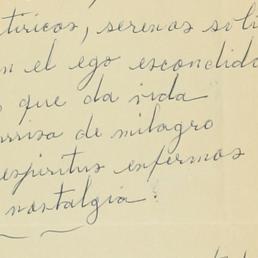 tíricos, serenos
n el ego escondido
que da vida
de milagro
espíritus enfermos
nostalgia.